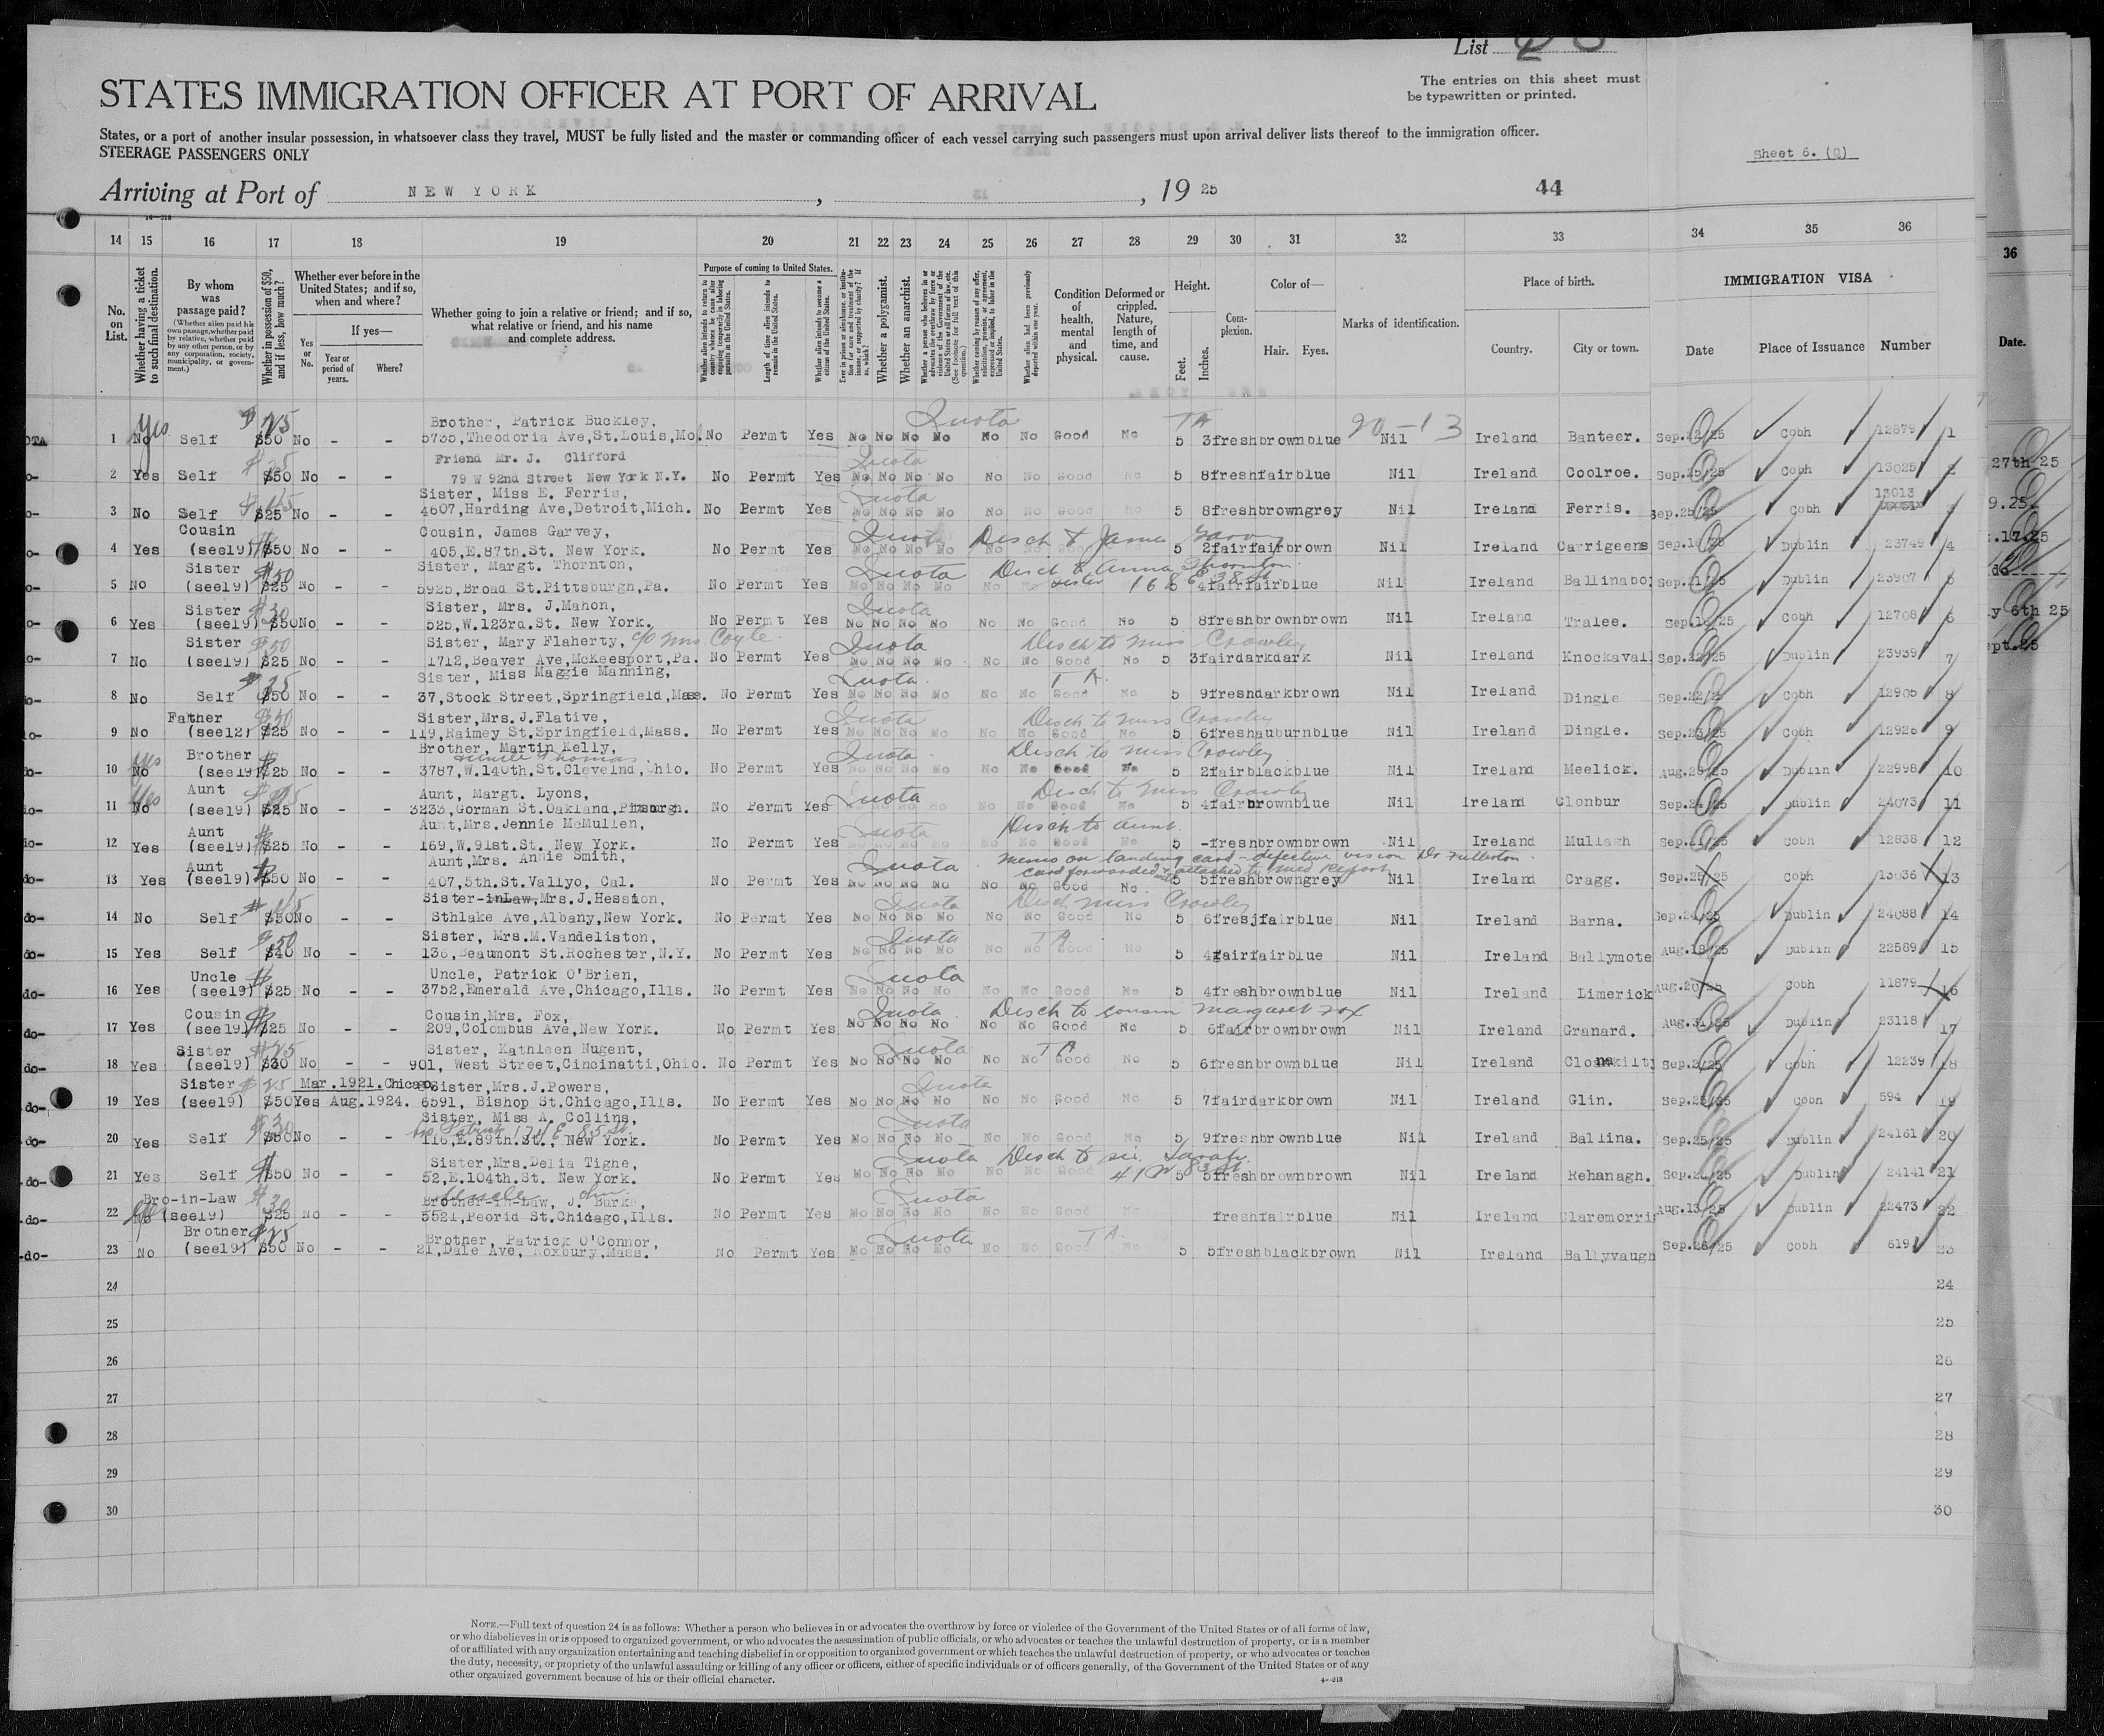 List
The entries on this sheet must
be typewritten or printed.
STATES IMMIGRATION OFFICER AT PORT OF ARRIVAL
States, or a port of another insular possession, in whatsoever class they travel, MUST be fully listed and the master or commanding officer of each vessel carrying such passengers must upon arrival deliver lists thereof to the immigration officer.
STEERAGE PASSENGERS ONLY
Sheet 6. (C)
Arriving at Port of NEW YORK , , 19 25 44
14 15 16 17 18 19 20 21 22 23 24 25 26 27 28 29 30 31 32 33 34 35 36
36
No. on List.
Whether having a ticket to such final destination.
By whom was passage paid?
(Whether alien paid his own passage, whether paid by relative, whether paid by any other person, or by any corporation, society, municipality, or government.)
Whether in possession of $50, and if less, how much?
Whether ever before in the United States; and if so, when and where?
Yes or No.
If yes—
Year or period of years.
Where?
Whether going to join a relative or friend; and if so, what relative or friend, and his name and complete address.
Purpose of coming to United States.
Length of time alien intends to remain in the United States.
Whether alien intends to become a citizen of the United States.
Whether a polygamist.
Whether an anarchist.
Condition of health, mental and physical.
Deformed or crippled. Nature, length of time, and cause.
Height.
Feet. Inches.
Complexion.
Color of—
Hair. Eyes.
Marks of identification.
Place of birth.
Country. City or town.
IMMIGRATION VISA
Date Place of Issuance Number
Date.
Brother, Patrick Buckley, Quota TA
1 No Yes Self $50 $25 No - - 5735,Theodoria Ave,St.Louis,Mo. No Permt Yes No No No No No No Good No 5 3 fresh brown blue Nil Ireland Banteer. Sep.22/25 Cobh 12879 1
Friend Mr. J. Clifford Quota
2 Yes Self $50 No - - 79 W 92nd Street New York N.Y. No Permt Yes No No No No No No Good No 5 8 fresh fair blue Nil Ireland Coolroe. Sep.25/25 Cobh 13025 2
Sister, Miss E. Ferris, Quota 13013
3 No Self $25 No - - 4607,Harding Ave,Detroit,Mich. No Permt Yes No No No No No No Good No 5 8 fresh brown grey Nil Ireland Ferris. Sep.25/25 Cobh 3
Cousin Cousin, James Garvey, Quota Disch to James Garvey
4 Yes (see19) $50 No - - 405,E.87th.St. New York. No Permt Yes 5 2 fair fair brown Nil Ireland Carrigeens Sep.16/25 Dublin 23749 4
Sister $50 Sister, Margt. Thornton, Quota Disch to Anna Thornton
5 No (see19) $25 No - - 5925,Broad St.Pittsburgh,Pa. No Permt Yes sister 168 E 38 St 4 fair fair blue Nil Ireland Ballinabo Sep.21/25 Dublin 23907 5
Sister $30 Sister, Mrs. J.Mahon, Quota
6 Yes (see19) $50 No - - 525,W.123rd.St. New York. No Permt Yes No No No No No No Good No 5 8 fresh brown brown Nil Ireland Tralee. Sep.16/25 Cobh 12708 6
Sister $50 Sister, Mary Flaherty, c/o Mrs Coyle. Quota Disch to Miss Crowley
7 No (see19) $25 No - - 1712,Beaver Ave,McKeesport,Pa. No Permt Yes No No No No No No Good No 5 3 fair dark dark Nil Ireland Knockaval Sep.22/25 Dublin 23939 7
$25 Sister, Miss Maggie Manning, Quota. TA
8 No Self $50 No - - 37,Stock Street,Springfield,Mass. No Permt Yes No No No No No No Good No 5 9 fresh dark brown Nil Ireland Dingle Sep.22/25 Cobh 12905 8
Father $30 Sister,Mrs.J.Flative, Quota Disch to Miss Crowley
9 No (see12) $25 No - - 119,Raimey St.Springfield,Mass. No Permt Yes No No No No No No Good No 5 6 fresh auburn blue Nil Ireland Dingle. Sep.23/25 Cobh 12925 9
Brother Brother, Martin Kelly, Thomas Quota Disch to Miss Crowley
10 No Yes (see19) $25 No - - 3787,W.140th.St.Clevelnd,Ohio. No Permt Yes No No No No No No Good No 5 2 fair black blue Nil Ireland Meelick. Aug.28/25 Dublin 22998 10
Aunt Aunt, Margt. Lyons, Quota Disch to Miss Crowley
11 No Yes (see19) $25 No - - 3233,Gorman St.Oakland,Pittsburgh. No Permt Yes No No Good No 5 4 fair brown blue Nil Ireland Clonbur Sep.24/25 Dublin 24073 11
Aunt Aunt,Mrs.Jennie McMullen, Quota Disch to Aunt.
12 Yes (see19) $25 No - - 169,W.91st.St. New York. No Permt Yes No No Good No 5 - fresh brown brown Nil Ireland Mullagh Sep.21/25 Cobh 12838 12
Aunt Aunt,Mrs. Annie Smith, Quota. Memo on landing card - defective vision Dr Fullerton.
13 Yes (see19) $50 No - - 407,5th.St.Vallyo, Cal. No Permt Yes card forwarded attached to Med Report No No No No No No Good No 5 5 fresh brown grey Nil Ireland Cragg. Sep.25/25 Cobh 13036 13
Sister-in-Law,Mrs.J.Hession, Quota Disch Miss Crowley
14 No Self $50 No - - Sthlake Ave,Albany,New York. No Permt Yes No No No No No No Good No 5 6 fresj fair blue Nil Ireland Barna. Sep.24/25 Dublin 24088 14
$50 Sister, Mrs.M.Vandeliston, Quota TA
15 Yes Self $40 No - - 136,Beaumont St.Rochester,N.Y. No Permt Yes No No No No No No Good No 5 4 fair fair blue Nil Ireland Ballymote Aug.18/25 Dublin 22589 15
Uncle Uncle, Patrick O'Brien, Quota
16 Yes (see19) $25 No - - 3752,Emerald Ave,Chicago,Ills. No Permt Yes No No No No No No Good No 5 4 fresh brown blue Nil Ireland Limerick Aug.20/25 Cobh 11879 16
Cousin Cousin,Mrs. Fox, Quota. Disch to cousin Margaret Fox
17 Yes (see19) $25 No - - 209,Colombus Ave,New York. No Permt Yes No No No No No No Good No 5 6 fair brown brown Nil Ireland Granard. Aug.31/25 Dublin 23118 17
Sister $25 Sister, Kathleen Nugent, Quota TA
18 Yes (see19) $30 No - - 901, West Street,Cincinatti,Ohio. No Permt Yes No No No No No No Good No 5 6 fresh brown blue Nil Ireland Clonakilty Sep.2/25 Cobh 12239 18
Sister $25 Mar.1921.Chicago Sister,Mrs.J.Powers, Quota
19 Yes (see19) $50 Yes Aug.1924. 6591, Bishop St.Chicago,Ills. No Permt Yes No No No No No No Good No 5 7 fair dark brown Nil Ireland Glin. Sep.25/25 Cobh 594 19
$30 Sister, Miss A. Collins, Quota
20 Yes Self No - - 116,E.89th.St., New York. bro Patrick 171 E 85 St. No Permt Yes No No No No No No Good No 5 9 fresh brown blue Nil Ireland Ballina. Sep.25/25 Dublin 24161 20
Sister,Mrs.Delia Tighe, Quota Disch to sis. Sarah
21 Yes Self $50 No - - 52,E.104th.St. New York. No Permt Yes No No No No No No Good 41 W 83 St 5 5 fresh brown brown Nil Ireland Rehanagh. Sep.26/25 Dublin 24141 21
Bro-in-Law $30 Brother-in-Law, J. Burke, Quota
22 No (see19) $25 No - - 5521,Peoria St.Chicago,Ills. No Permt Yes No No No No No No Good No fresh fair blue Nil Ireland Claremorris Aug.13/25 Dublin 22473 22
Brother $25 Brother, Patrick O'Connor, Quota TA.
23 No (see19) $50 No - - 21,Dale Ave, Roxbury,Mass. No Permt Yes No No No No No No Good No 5 5 fresh black brown Nil Ireland Ballyvaugh Sep.26/25 Cobh 619 23
24 24
25 25
26 26
27 27
28 28
29 29
30 30
NOTE.—Full text of question 24 is as follows: Whether a person who believes in or advocates the overthrow by force or violence of the Government of the United States or of all forms of law,
or who disbelieves in or is opposed to organized government, or who advocates the assassination of public officials, or who advocates or teaches the unlawful destruction of property, or is a member
of or affiliated with any organization entertaining and teaching disbelief in or opposition to organized government or which teaches the unlawful destruction of property, or who advocates or teaches
the duty, necessity, or propriety of the unlawful assaulting or killing of any officer or officers, either of specific individuals or of officers generally, of the Government of the United States or of any
other organized government because of his or their official character.